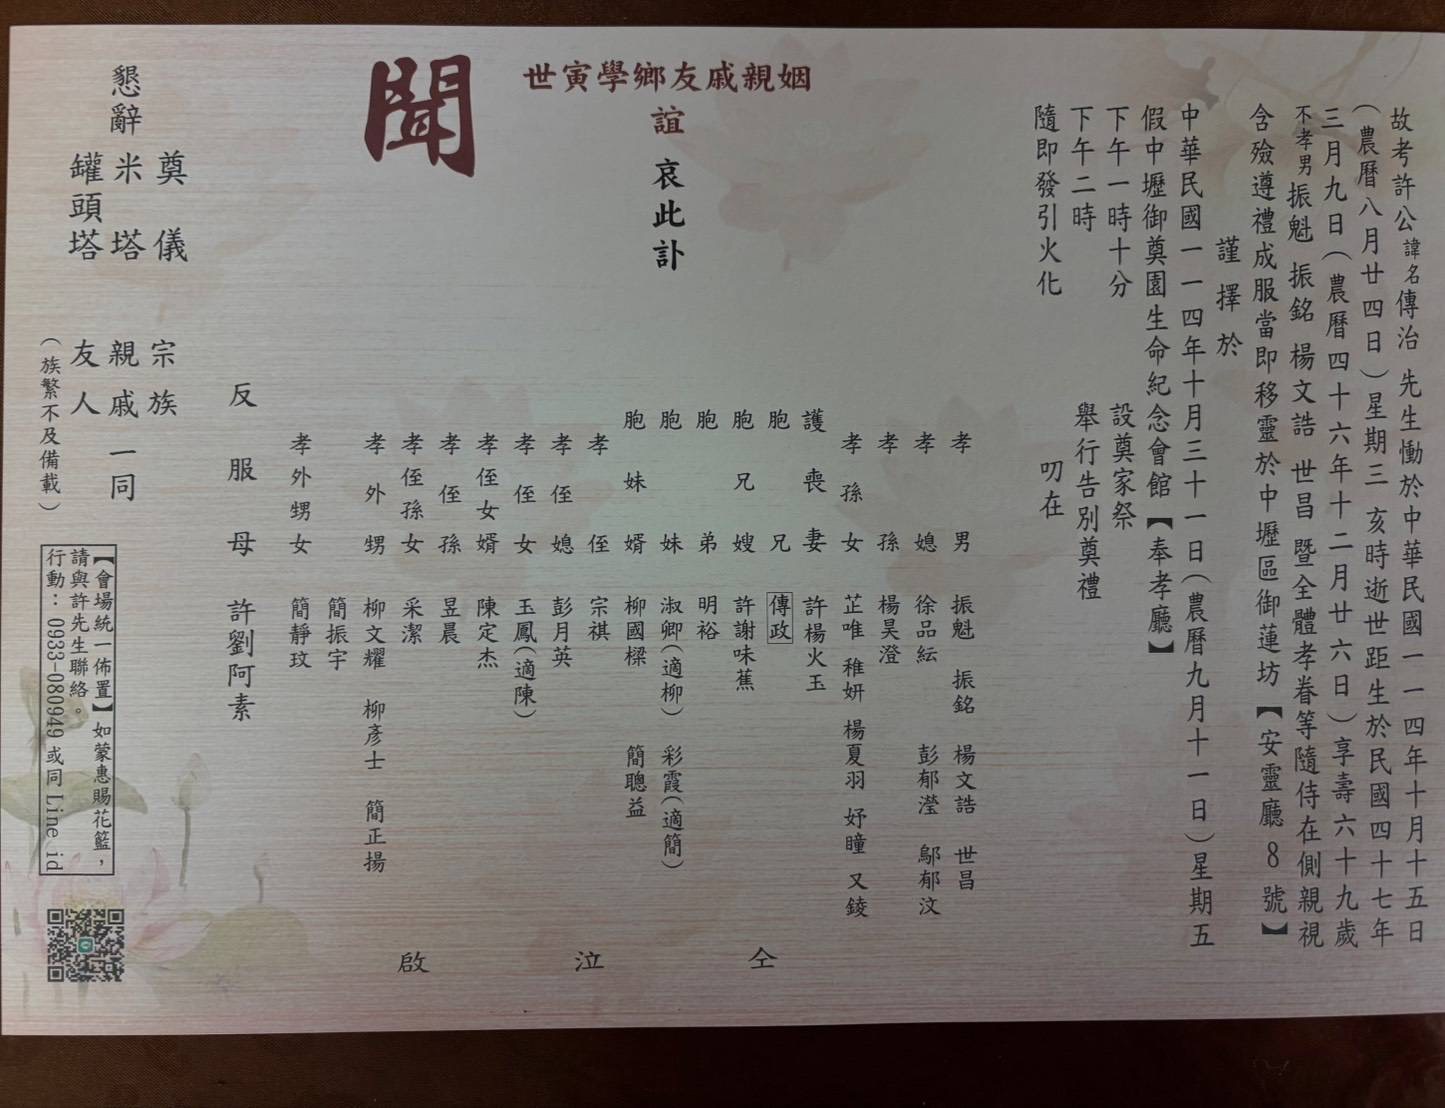 故考許公諱名傳治 先生慟於中華民國一一四年十月十五日
（農曆八月廿四日）星期三 亥時逝世距生於民國四十七年
三月九日（農曆四十六年十二月廿六日）享壽六十九歲
不孝男振魁 振銘 楊文誥 世昌 暨全體孝眷等隨侍在側親視
含殮遵禮成服當即移靈於中壢區御蓮坊【安靈廳8號】
謹擇於
中華民國一一四年十月三十一日（農曆九月十一日）星期五
假中壢御奠園生命紀念會館【奉孝廳】
下午一時十分 設奠家祭
下午二時 舉行告別奠禮
隨即發引火化 叨在
姻親戚友鄉學寅世
誼 哀此訃
聞
孝男 振魁 振銘 楊文誥 世昌
孝媳 徐品紜 彭郁瀅 鄔郁汶
孝孫 楊昊澄
孝孫女 芷唯 稚妍 楊夏羽 妤瞳 又錂
護喪妻 許楊火玉
胞兄 傳政
胞兄嫂 許謝味蕉
胞弟 明裕
胞妹 淑卿（適柳） 彩霞（適簡）
胞妹婿 柳國樑 簡聰益
孝侄 宗祺
孝侄媳 彭月英
孝侄女 玉鳳（適陳）
孝侄女婿 陳定杰
孝侄孫 昱晨
孝侄孫女 采潔
孝外甥 柳文耀 柳彥士 簡正揚
簡振宇
孝外甥女 簡靜玟
反服母 許劉阿素
仝 泣 啟
奠儀 宗族
懇辭 米塔 親戚一同
罐頭塔 友人
（族繁不及備載）
【會場統一佈置】如蒙惠賜花籃，
請與許先生聯絡。
行動：0933-080949 或同 Line id